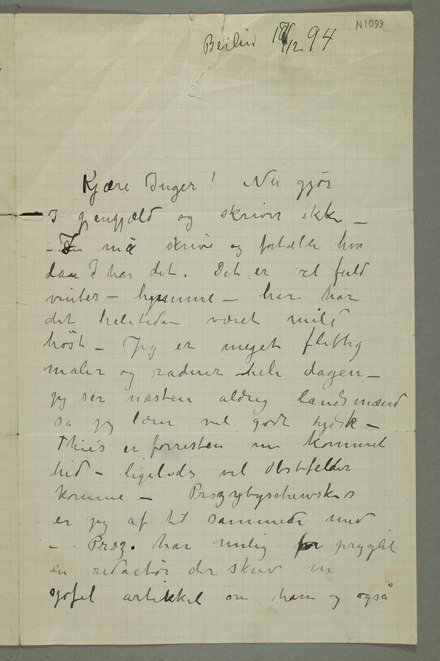 N1099
Berlin 17/12 94
Kjære Inger! Nu gjør
I gjengjæld og skriver ikke –
– I må skrive og fortælle hvor
dan I har det. Det er vel fuld
vinter – hjemme – her har
det heletiden været mild
høst – Jeg er meget flittig
maler og raderer hele dagen –
jeg ser næsten aldrig landsmænd
så jeg lærer vel godt tysk –
Thiis er forresten nu kommet
hid – ligeledes vil Obstfelder
komme – Przybyschewskis
er jeg af til sammen med
– Prsz. har nylig pryglet
en redaktør der skrev en
gofel artikkel om ham og også